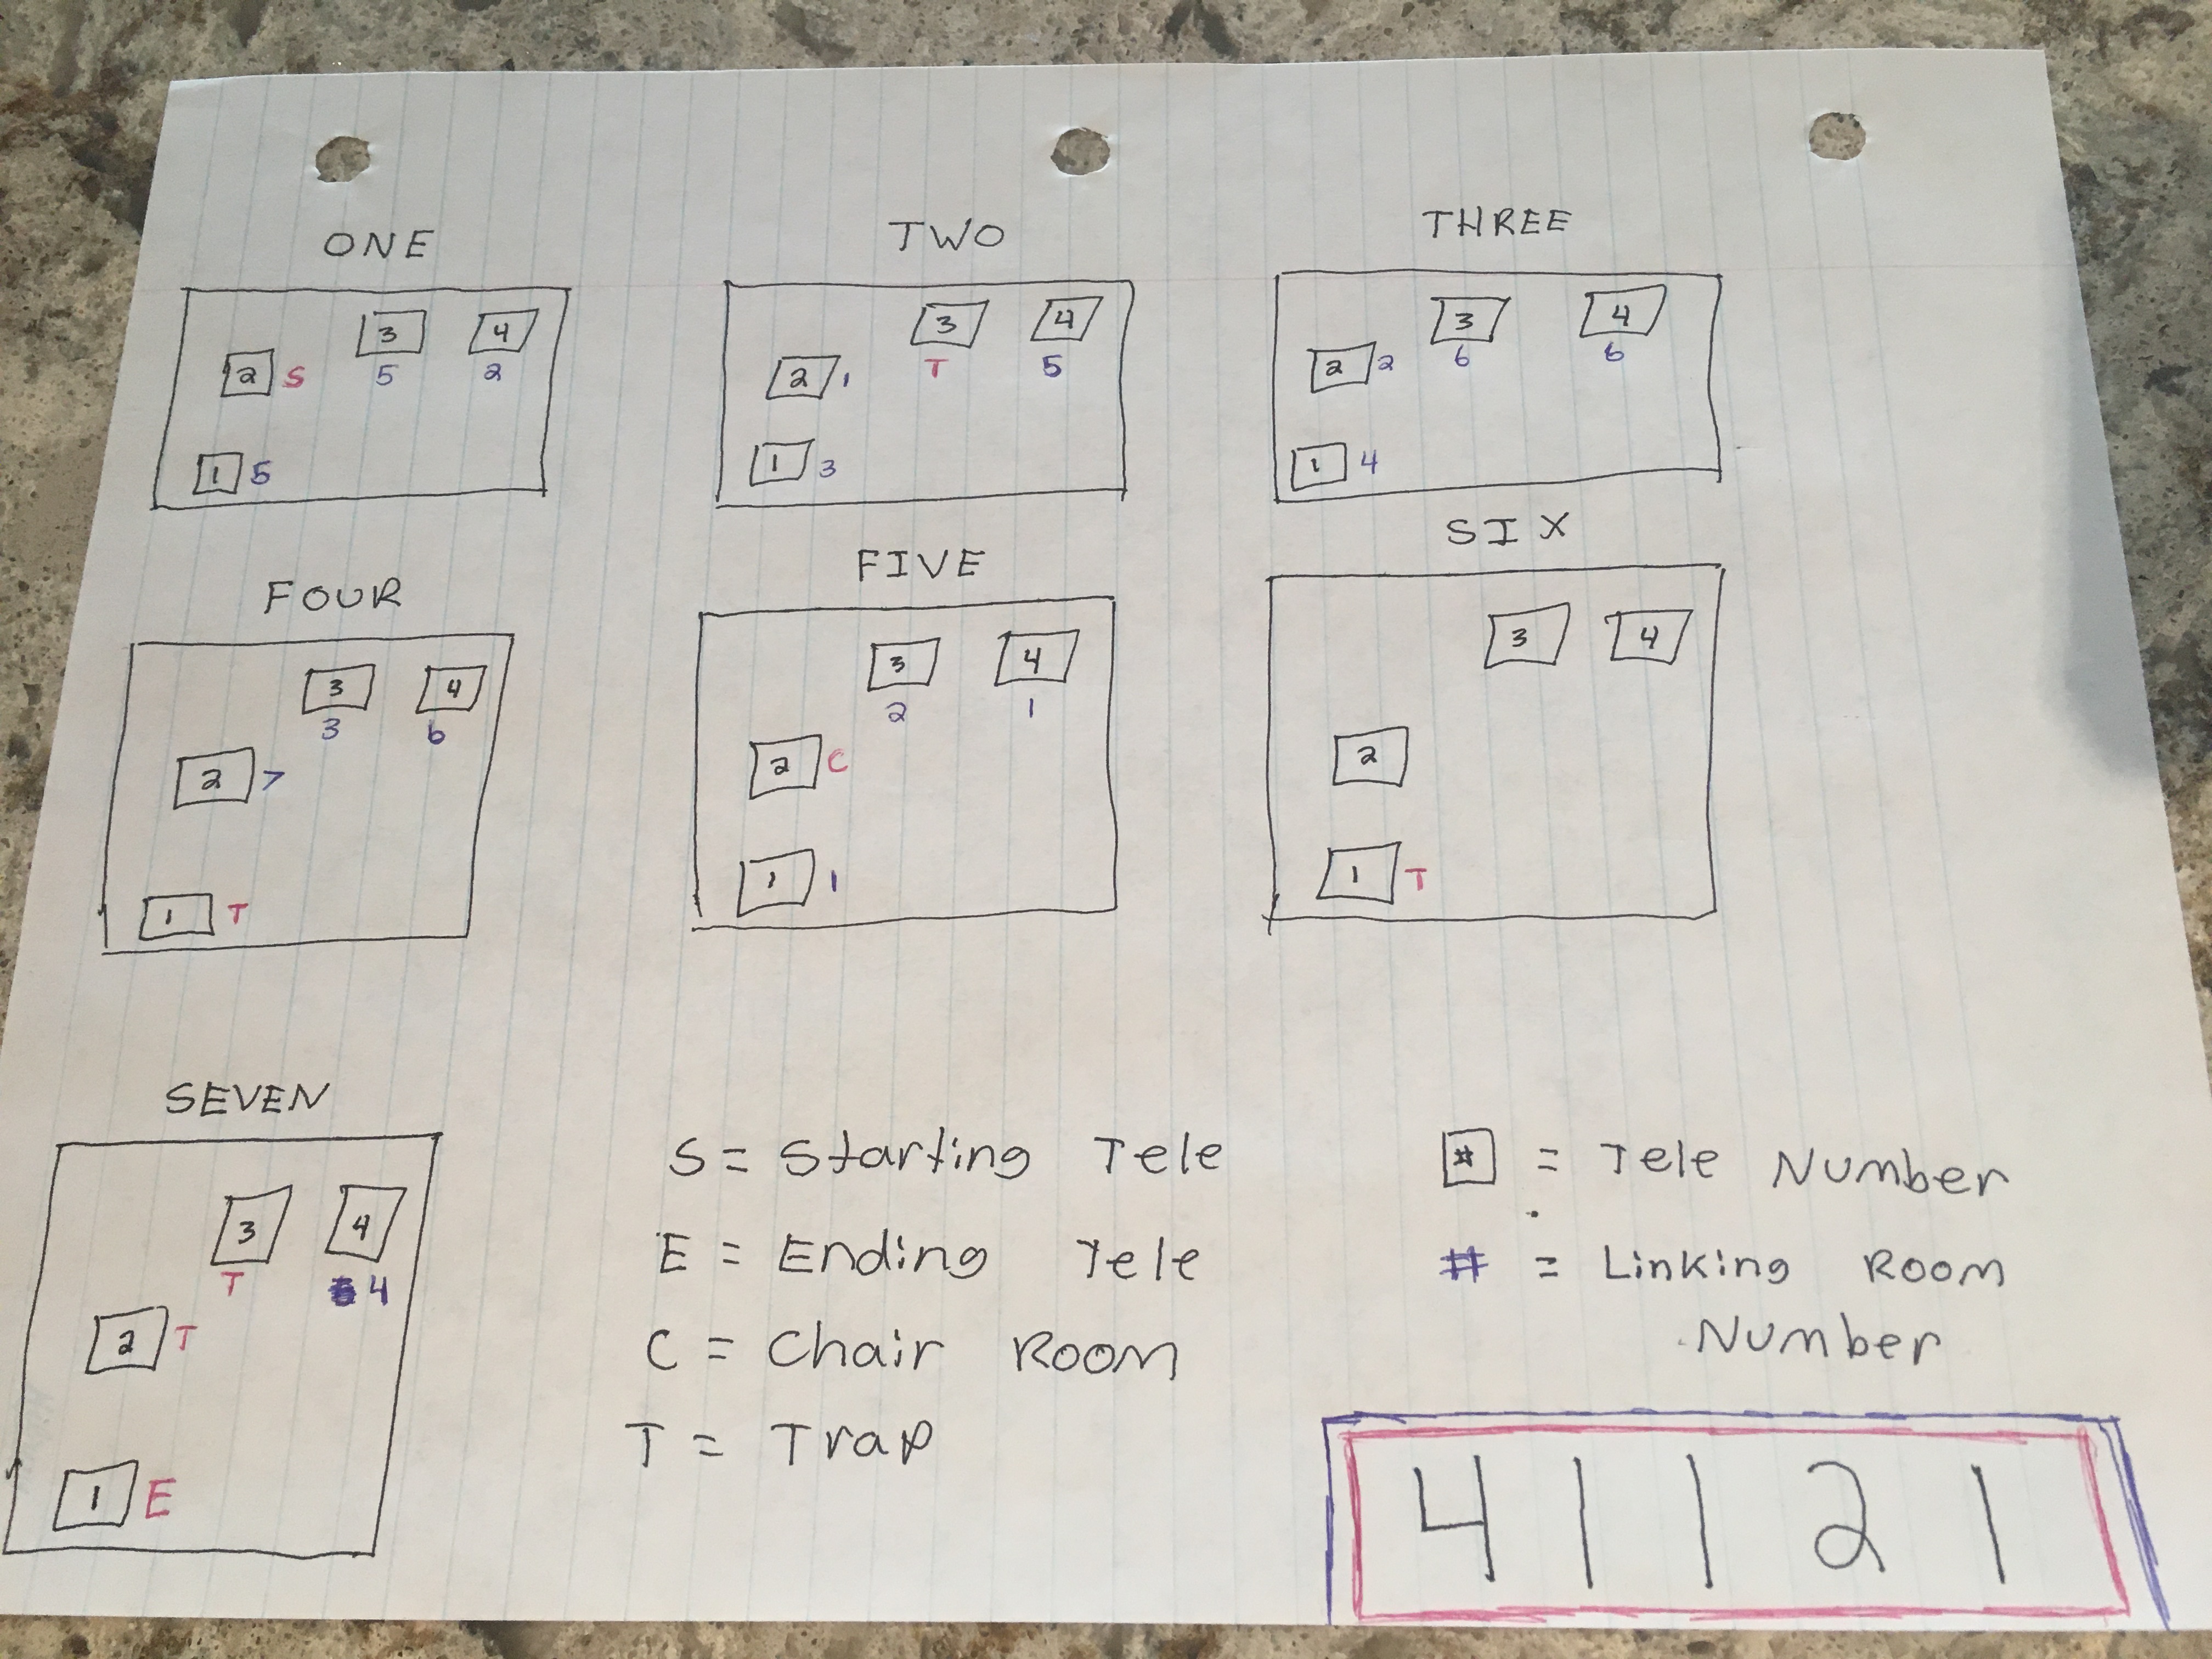 ONE TWO THREE
3 4
2 S 5 2
1 5
3 4
2 1 T 5
1 3
3 4
2 2 6 6
1 4
FOUR FIVE SIX
3 4
3 6
2 7
1 T
3 4
2 1
2 C
1 1
3 4
2
1 T
SEVEN
3 4
T 4
2 T
1 E
S = Starting Tele
E = Ending Tele
C = Chair Room
T = Trap
# = Tele Number
# = Linking Room
Number
4 1 1 2 1